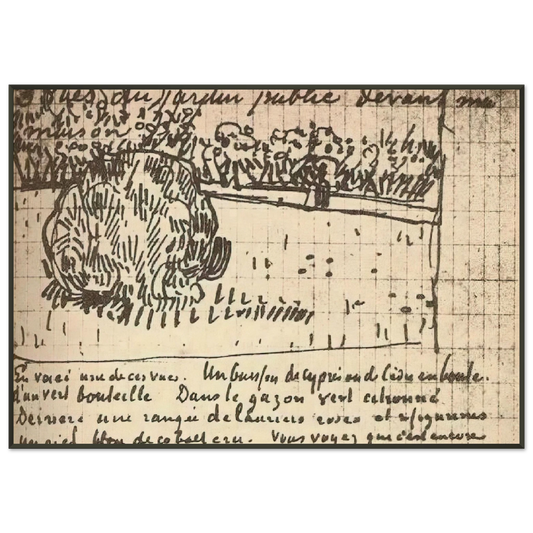 vues du jardin public devant ma
maison
En voici une de ces vues. Un buisson de cyprès de Line en boule.
d'un vert bouteille Dans le gazon vert citronné
Derriere une rangée de lauriers roses et
un ciel bleu de cobalt cru. Vous voyez que c'est encore